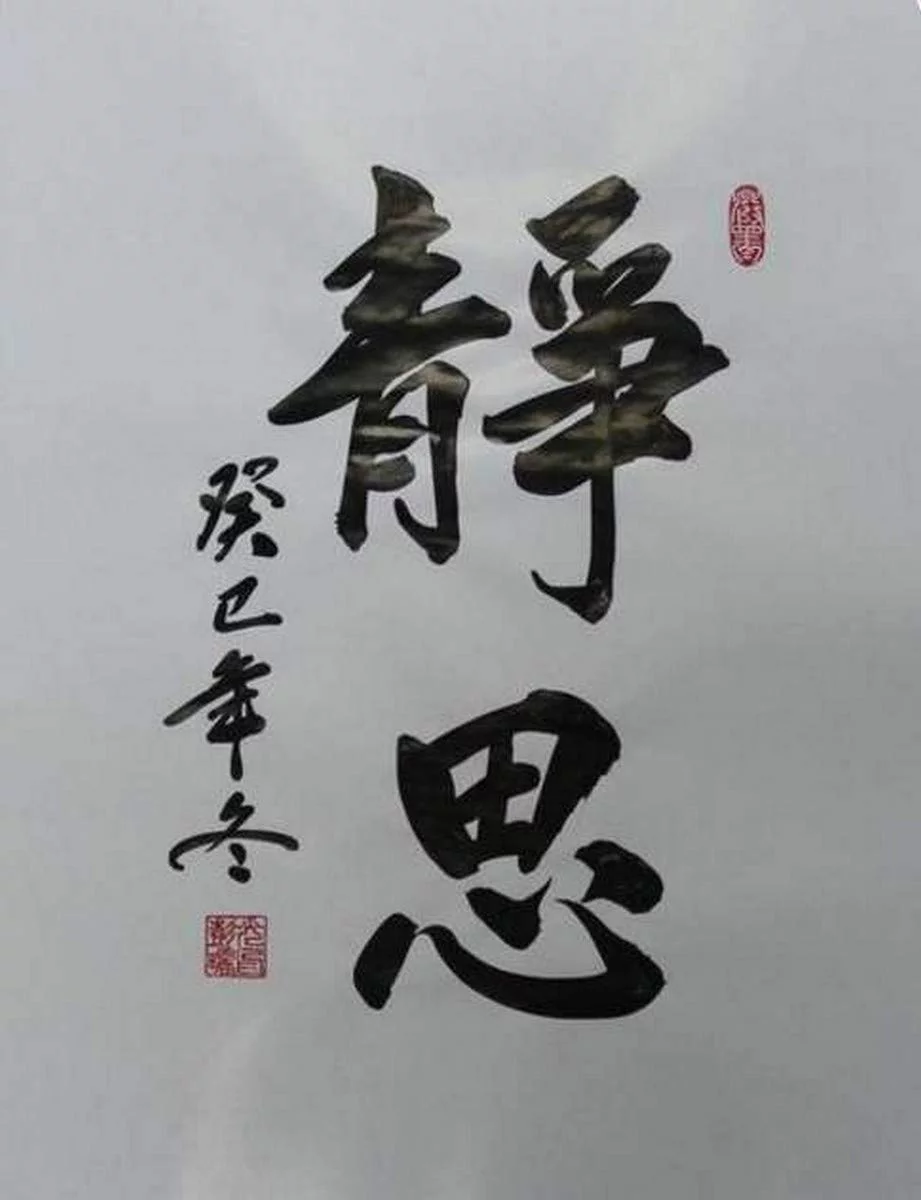 靜思
癸巳年冬